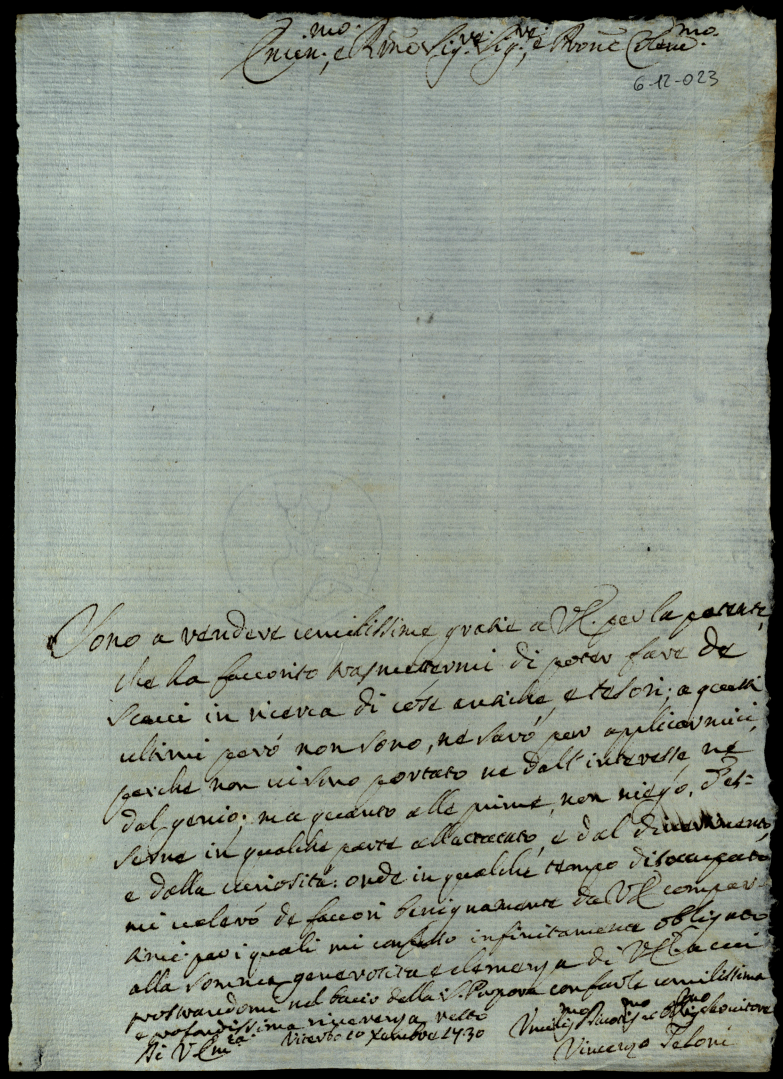 Emin.mo, e Rmo Sig.re Sig.re, e Pron Colmo
6-12-023
Sono a rendere umilissime gratie a VE. per la patente,
che ha favorito trasmettermi di poter fare de
scavi in ricerca di cose antiche, e tesori; a questi
ultimi però non sono, ne sarò per applicarmici,
perche non vi sono portato ne dall'interesse, ne
dal genio; ma quanto alle prime, non niego, d'es-
serne in qualche parte allactato, e dal divertimento,
e dalla curiosità: onde in qualche tempo disoccupato
mi valerò de favori benignamente da VE compar-
timi: per i quali mi confesso infinitamente obligato
alla somma generosità e clemenza di VE
prostrandomi nel bacio della S. Porpora con farle umilissima
e profondissima riverenza resto
Di V Em.za Viterbo 10 Xembre 1730
Vincenzo